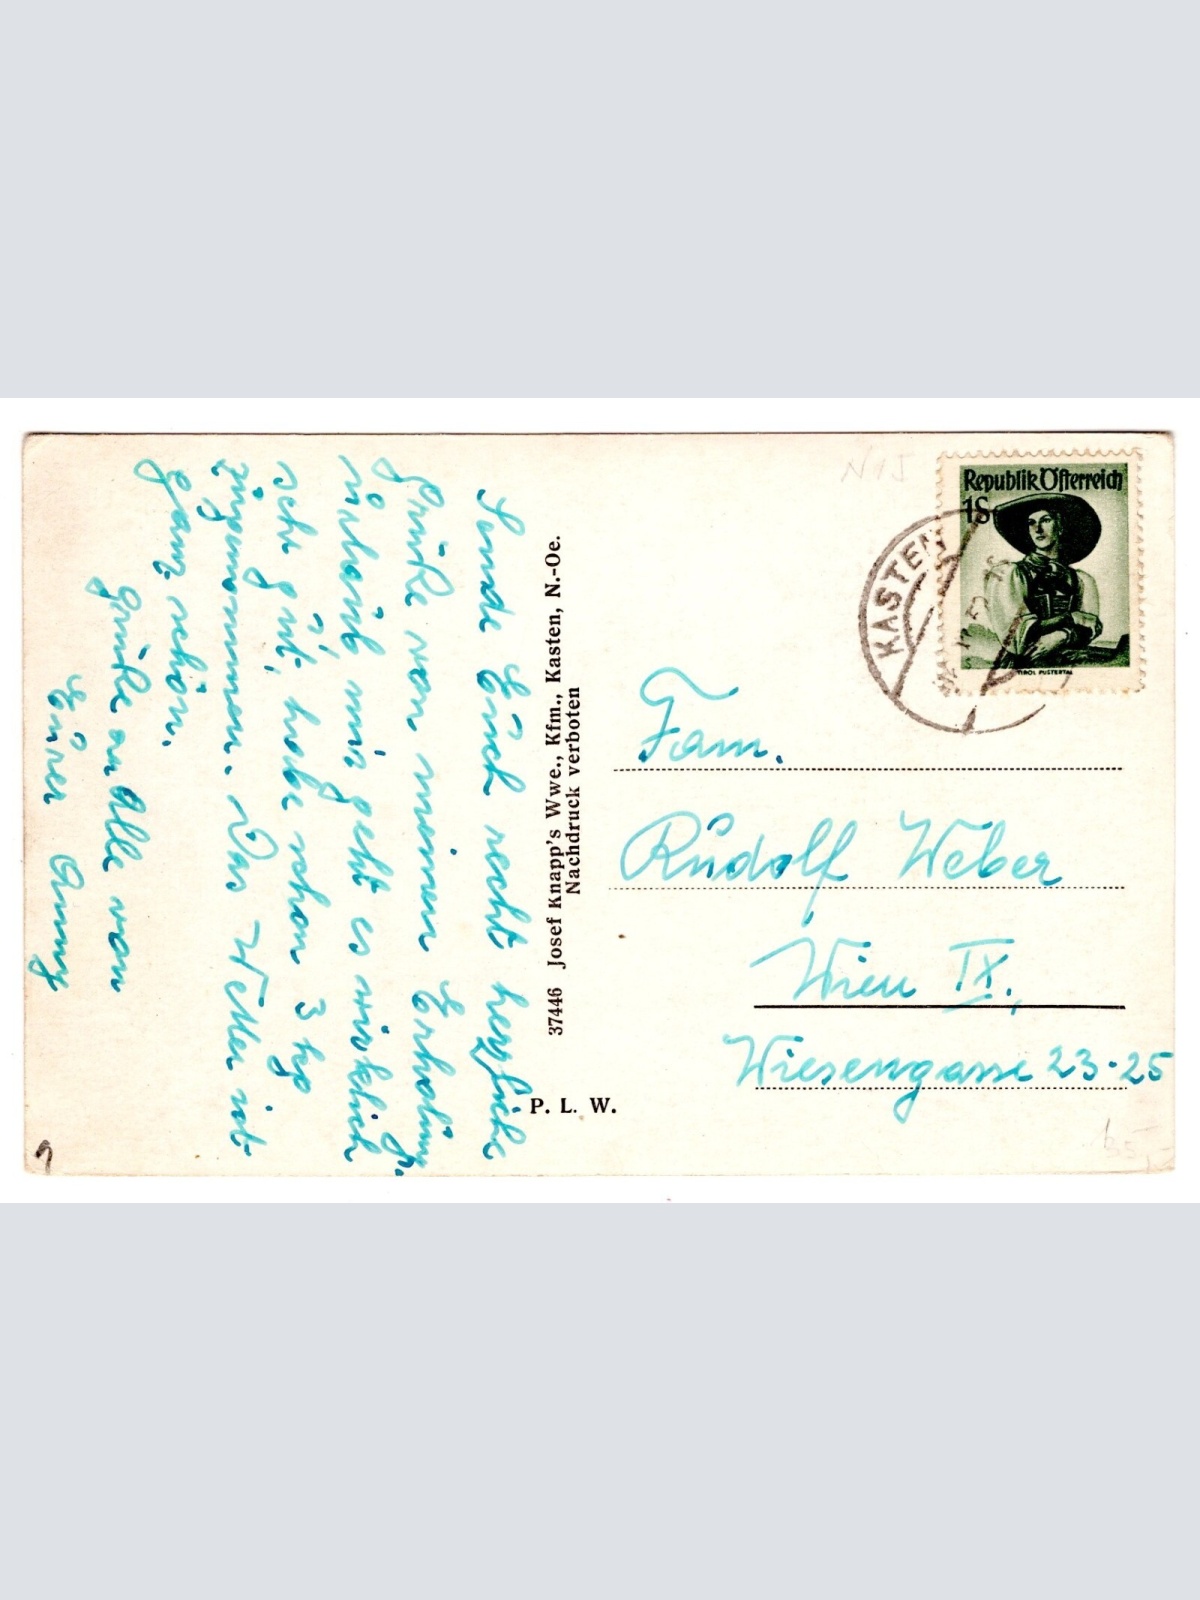 Sende Euch recht herzliche
Grüße von meinem Erholungs-
urlaub, mir geht es wirklich
sehr gut, habe schon 3 kg
zugenommen. Das Wetter ist
ganz schön.
Grüße an Alle von
Eurer
37446 Josef Knapp's Wwe., Kfm., Kasten, N.-Oe.
Nachdruck verboten
P. L. W.
N15
Republik Österreich
1S
TIROL PUSTERTAL
KASTEN
Fam.
Rudolf Weber
Wien IX.,
Wiesengasse 23-25